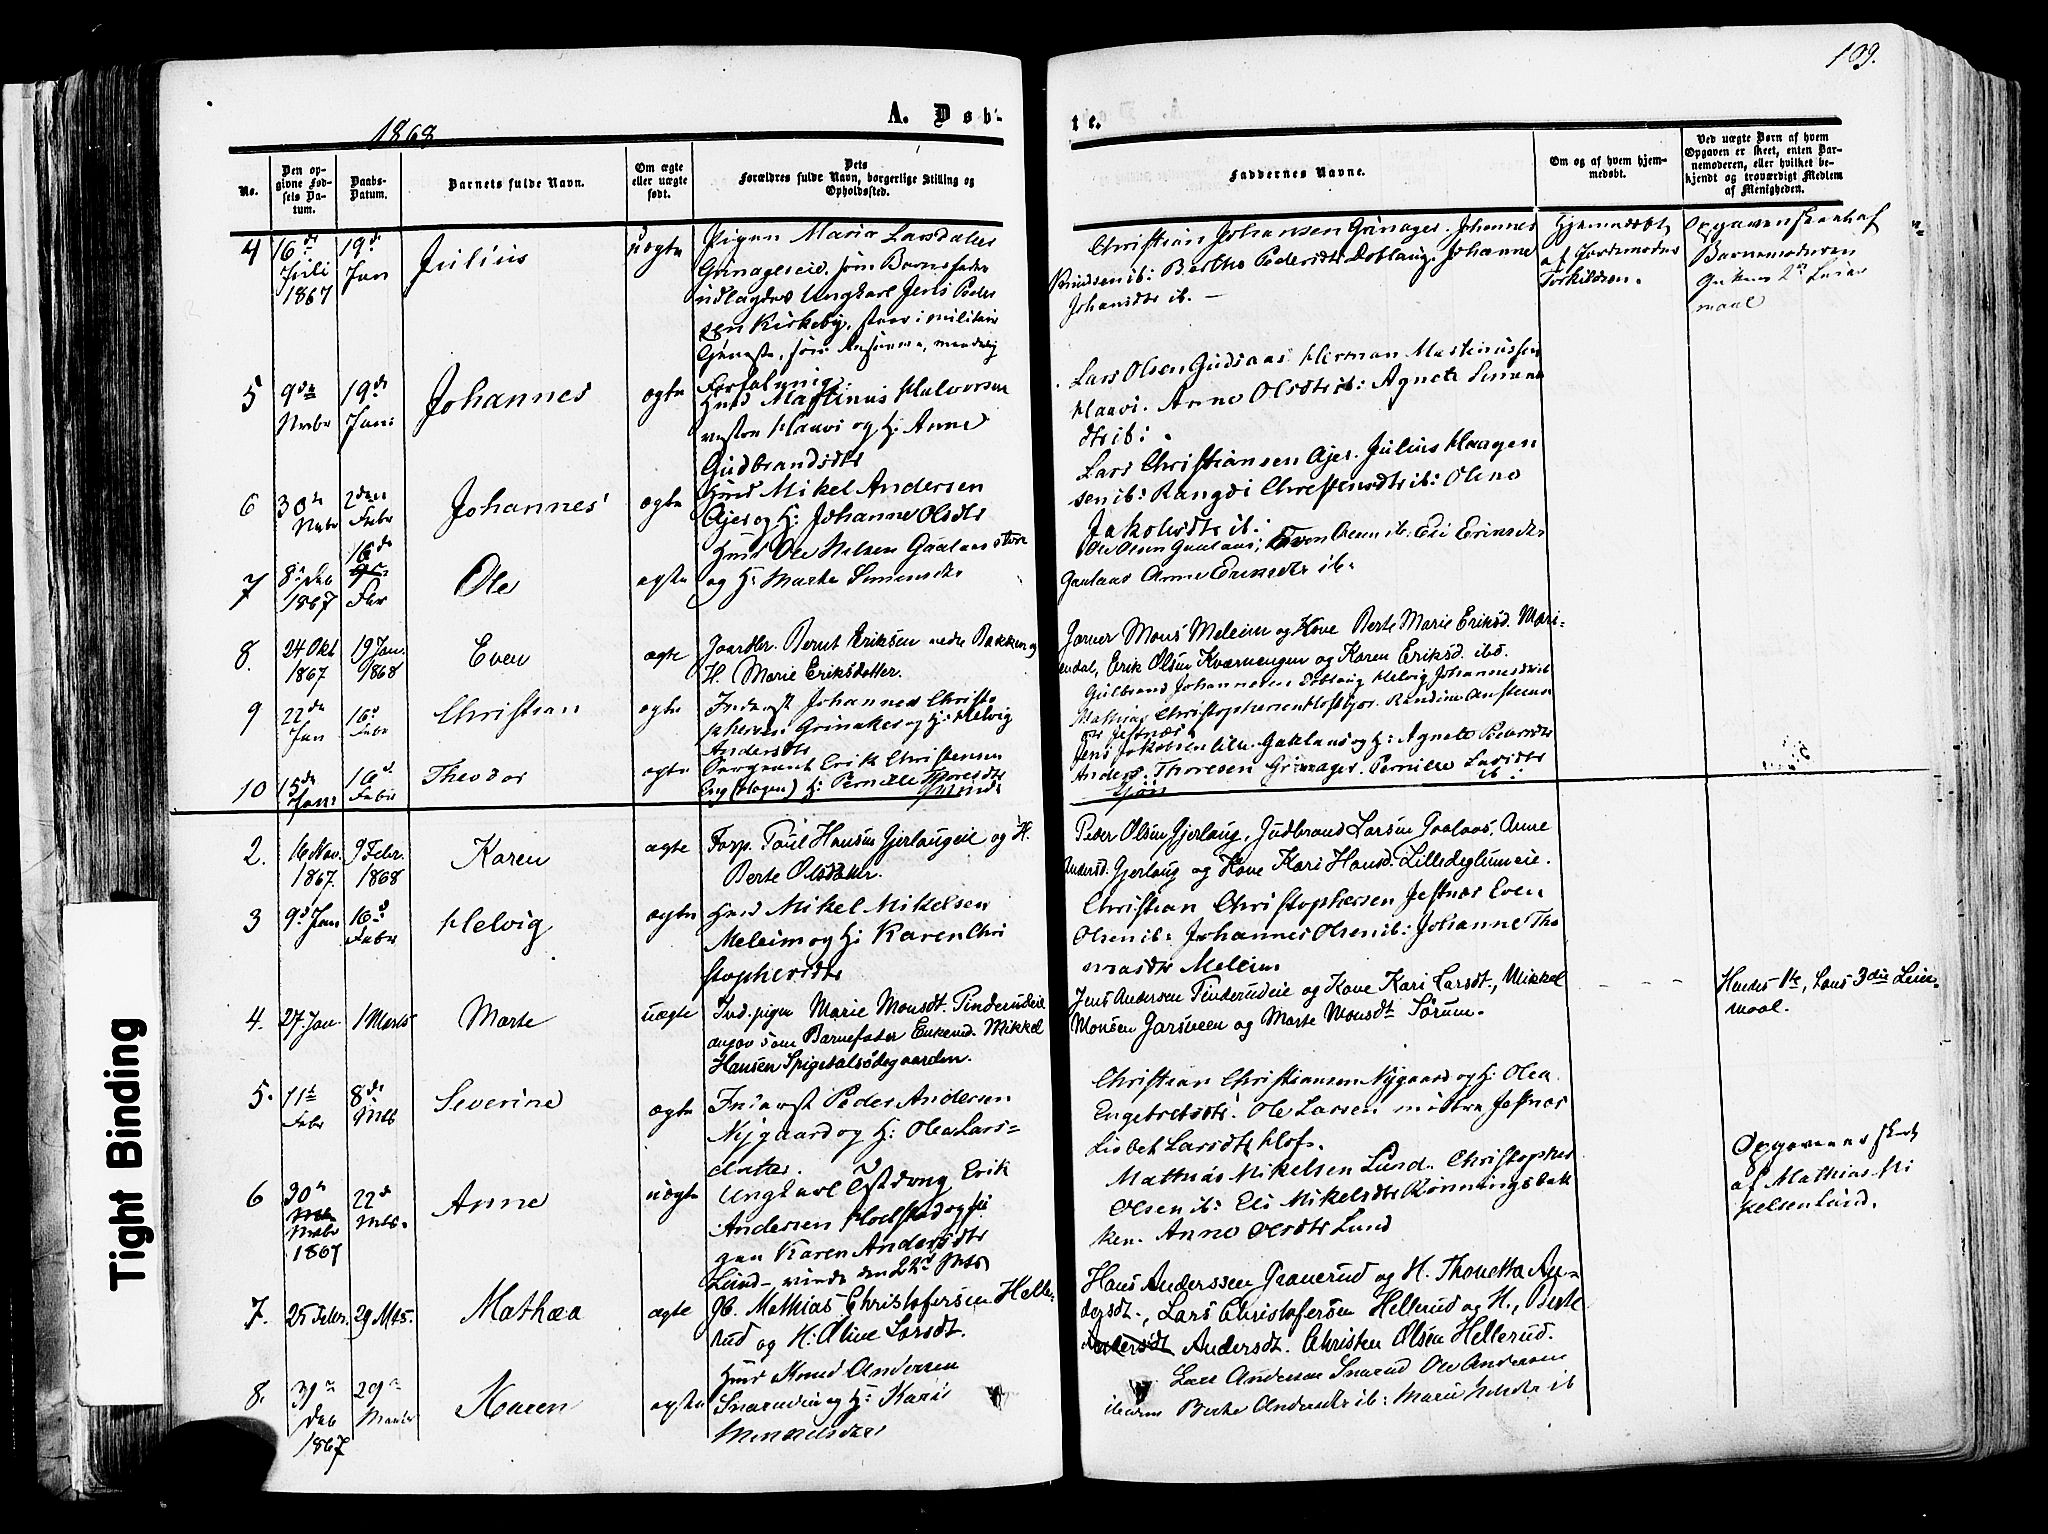 109.
1868
A. Døb-
te.
No.
Den op-
givne Fød-
sels Da-
tum.
Daabs-
Datum.
Barnets fulde Navn.
Om ægte
eller uægte
født.
Dets
Forældres fulde Navn, borgerlige Stilling og
Opholdssted.
Faddernes Navne.
Om og af hvem hjem-
medøbt.
Ved uægte Børn af hvem
Opgaven er skeet, enten Bar-
nemoderen, eller hvilket be-
kjendt og troværdigt Medlem
af Menigheden.
4
16de
Juli
1867
19d
Jan
Julius
uægte
Pigen Maria Larsdatter
Grinagereie, som Barnefader
udlagdes Ungkarl Jens Peder
sen Kirkeby, staar i militair
Christian Johansen Grinager. Johannes
Knudsen ib: Berthe Pedersdtr Doblaug. Johanne
Johansdtr ib. —
Hjemmedøbt
af Jordemoder
Torkildsen.
Opgaven skeet af
Barnemoderen
2det Leier
maal
5
9de
Nvbr
19de
Jan:
Johannes
ægte
Husd Martinus Halvorsen
vestre Haavi og H: Anne
Gudbrandsdtr
Lars Olsen Gudsaas Herman Martinussen
Haavi. Anne Olsdtr ib: Agnete Simens
dtr ib:
6
30te
Nvbr
2den
Febr
Johannes
ægte
Husd Mikel Andersen
Ajer og H: Johanne Olsdtr
Lars Christiansen Ajer. Julius Haagen
sen ib: Rangdi Christensdtr ib: Oline
Jakobsdtr ib:
7
8de Deb
1867
16de
Fbr
Ole
ægte
Husd Ole Nilsen Gaalaas store
og H: Marte Simensdtr
Ole Olsen Gaalaas, Even Olsen ib: Eli Eriksdtr
Gaalaas Anne Eriksdtr ib:
8.
24 Okt
1867
19 Jan.
1868
Even
ægte
Gaardbr. Bernt Eriksen nedre Bakken og
H. Marie Eriksdatter.
Mons Meleim og Kone Berte Marie Eriksd. Mari-
endal, Erik Olsen Kværnengen og Karen Eriksd. ibd.
9
22de
Jan
16d
Febr
Christian
ægte
Inderst Johannes Christo
phersen Grinaker og H: Helvig
Andersdtr
Gulbrand Johannesen Doblaug Helvig Johannesdtr ib
Mathias Christophersen Hofsbjør. Randine Anstens
dtr Jesnæs
10
15de
Jan:
16d
Febr
Theodor
ægte
Sergeant Erik Christensen
Eng (Hagen) H: Pernille Thoresdtr
Jens Jakobsen lille Gaalaas og H: Agnete Pedersdtr
Anders Thoresen Grinager. Pernille Larsdtr
ib:
2.
16 Nov.
1867.
9 Febr.
1868
Karen
ægte
Forp. Poul Hansen Gjerlaugeie og H.
Berte Olsdatter.
Peder Olsen Gjerlaug, Gudbrand Larsen Gaalaas, Anne
Andersd. Gjerlaug og Kone Kari Hansd. Lilledeglumeie.
3
9d Jan
16d
Febr
Helvig
ægte
Husd Mikel Mikelsen
Meleim og H: Karen Chri
stophersdtr
Christian Christophersen Jesnæs Even
Olsen ib: Johannes Olsen ib: Johanne Tho
masdtr Meleim
4.
27. Jan.
1 Marts
Marte
uægte
Ind. pigen Marie Monsdt. Tinderudeie
angav som Barnefader Enkemd. Mikkel
Hansen Spigedalsødegaarden.
Jens Andersen Tinderudeie og Kone Kari Larsdt., Mikkel
Monsen Jarsveen og Marte Monsdt Sørum.
Hendes 1te, hans 3die Leier-
maal.
5.
11te
Febr
8de
Mts
Severine
ægte
Inderst Peder Andersen
Nygaard og H: Olea Lars-
datter.
Christian Christiansen Nygaard og H: Olea
Engebretsdtr. Ole Larsen midtre Jesnæs
Lisbet Larsdtr Hof.
6
30te
Nvbr
1867
22d
Mts.
Anne
uægte
Ungkarl Østdeng Erik
Andersen Hoelstad og Pi
gen Karen Andersdtr
Lund – viede den 22d Mts
Mathias Mikelsen Lund. Christopher
Olsen ib: Eli Mikelsdtr Rønningsbak
ken. Anne Olsdtr Lund
Opgaven er skeet
af Mathias Mi
kelsen Lund.
7.
25 Febr.
29 Mts.
Mathea
ægte
Gb. Mathias Christofersen Helle-
rud og H: Oline Larsdt.
Hans Anderssen Granerud og H. Thonetta An-
dersdt., Lars Christofersen Hellerud og H., Berte
Andersdt. Christen Olsen Hellerud.
8.
31te
Deb
1867
29de
Marts
Karen
ægte
Husd Knud Andersen
Snarudeie og H: Kari
Lars Andersen Snarud Ole Andersen
Berte Andersdtr ib: Marie
Tight Binding